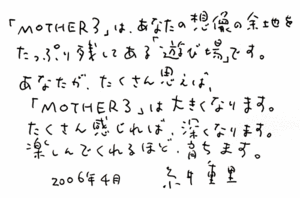 「MOTHER3」は、あなたの想像の余地を
たっぷり残してある「遊び場」です。
あなたが、たくさん思えば、
「MOTHER3」は大きくなります。
たくさん感じれば、深くなります。
楽しんでくれるほど、育ちます。
2006年4月 糸井重里